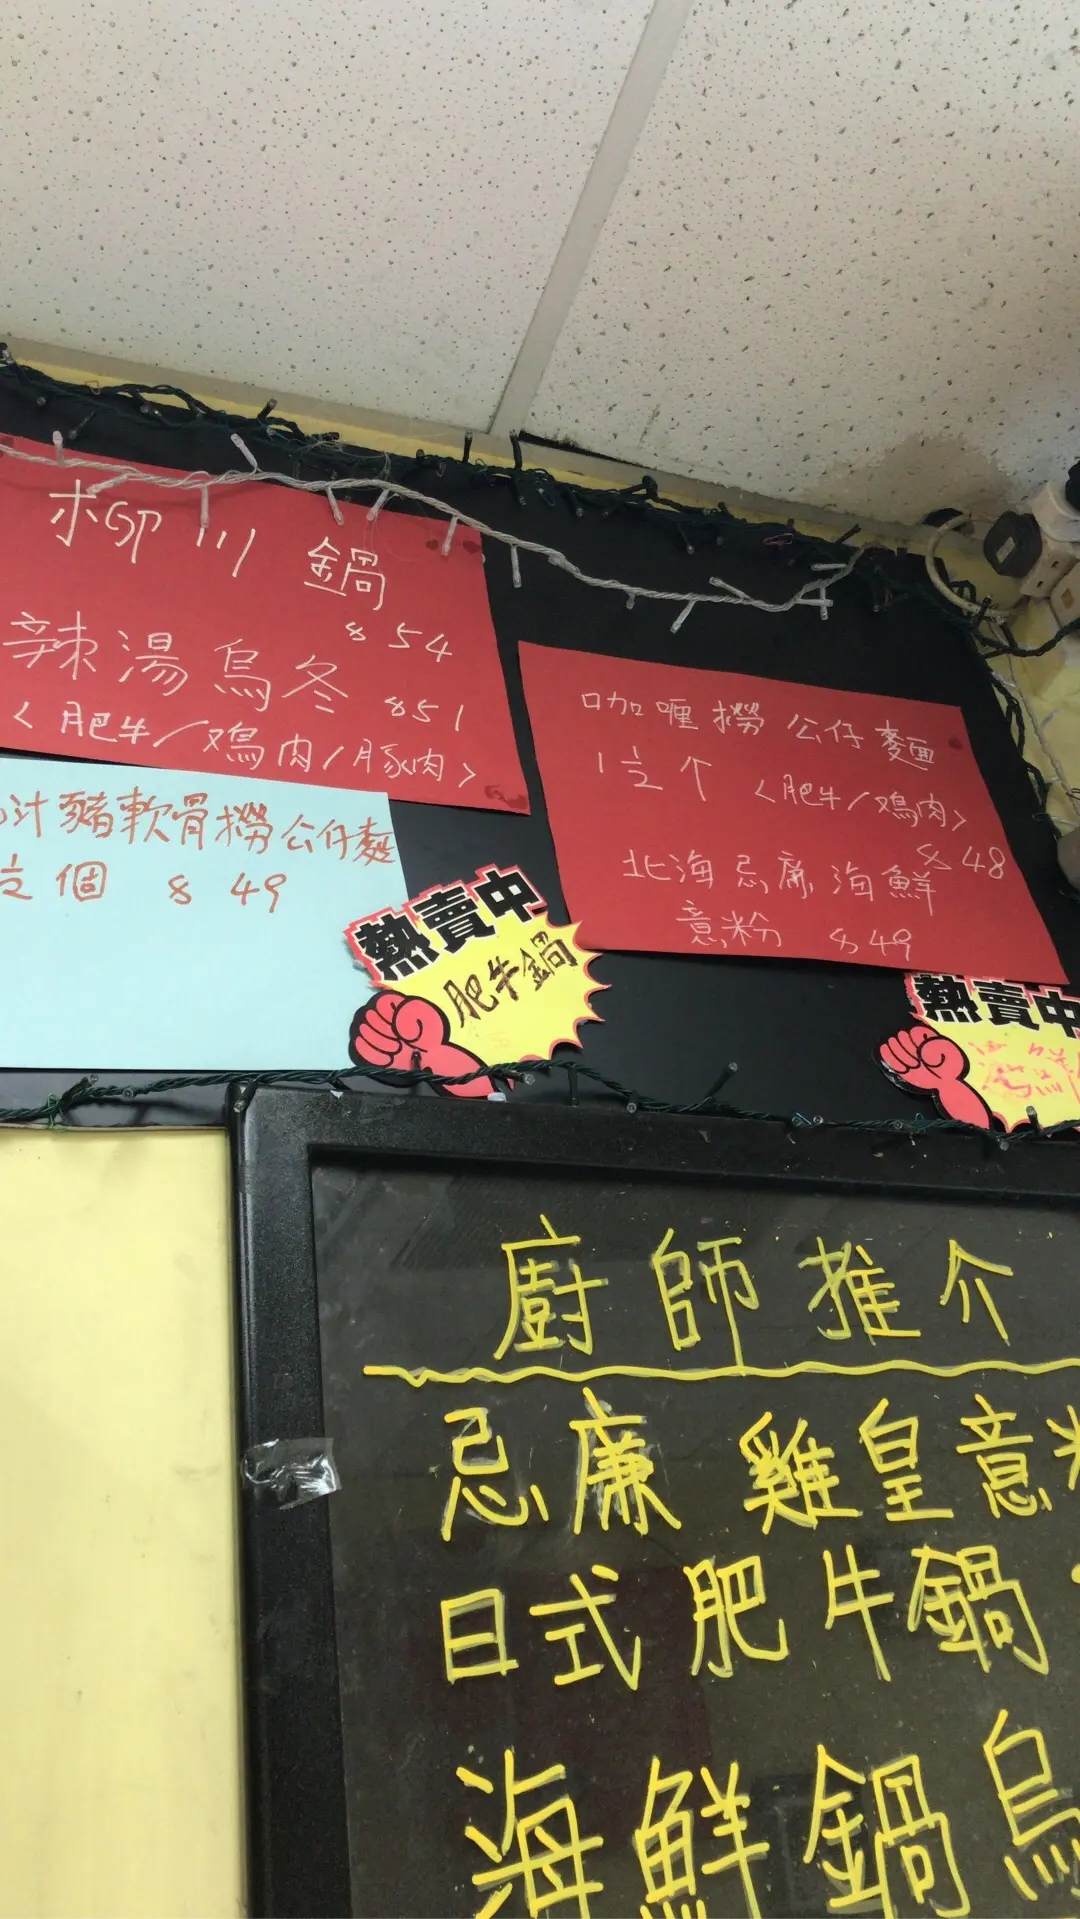 柳川鍋
$54
辣湯烏冬 $51
<肥牛/鳮肉/豚肉>
汁豬軟骨撈公仔麵
個 $49
熱賣中
肥牛鍋
咖喱撈公仔麵
1½个 <肥牛/鳮肉>
$48
北海忌廉海鮮
意粉 $49
熱賣中
海鮮
廚師推介
忌廉雞皇意
日式肥牛鍋
海鮮鍋烏